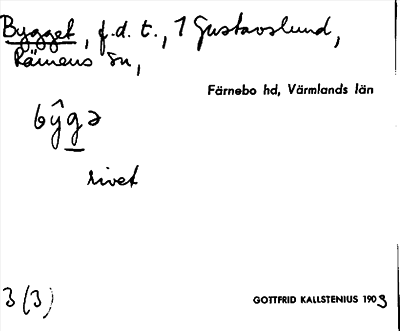 Bygget, f.d. t., 1 Gustavslund,
Rämens sn,
Färnebo hd, Värmlands län
bŷgə
rivet
3 (3)
GOTTFRID KALLSTENIUS 1903